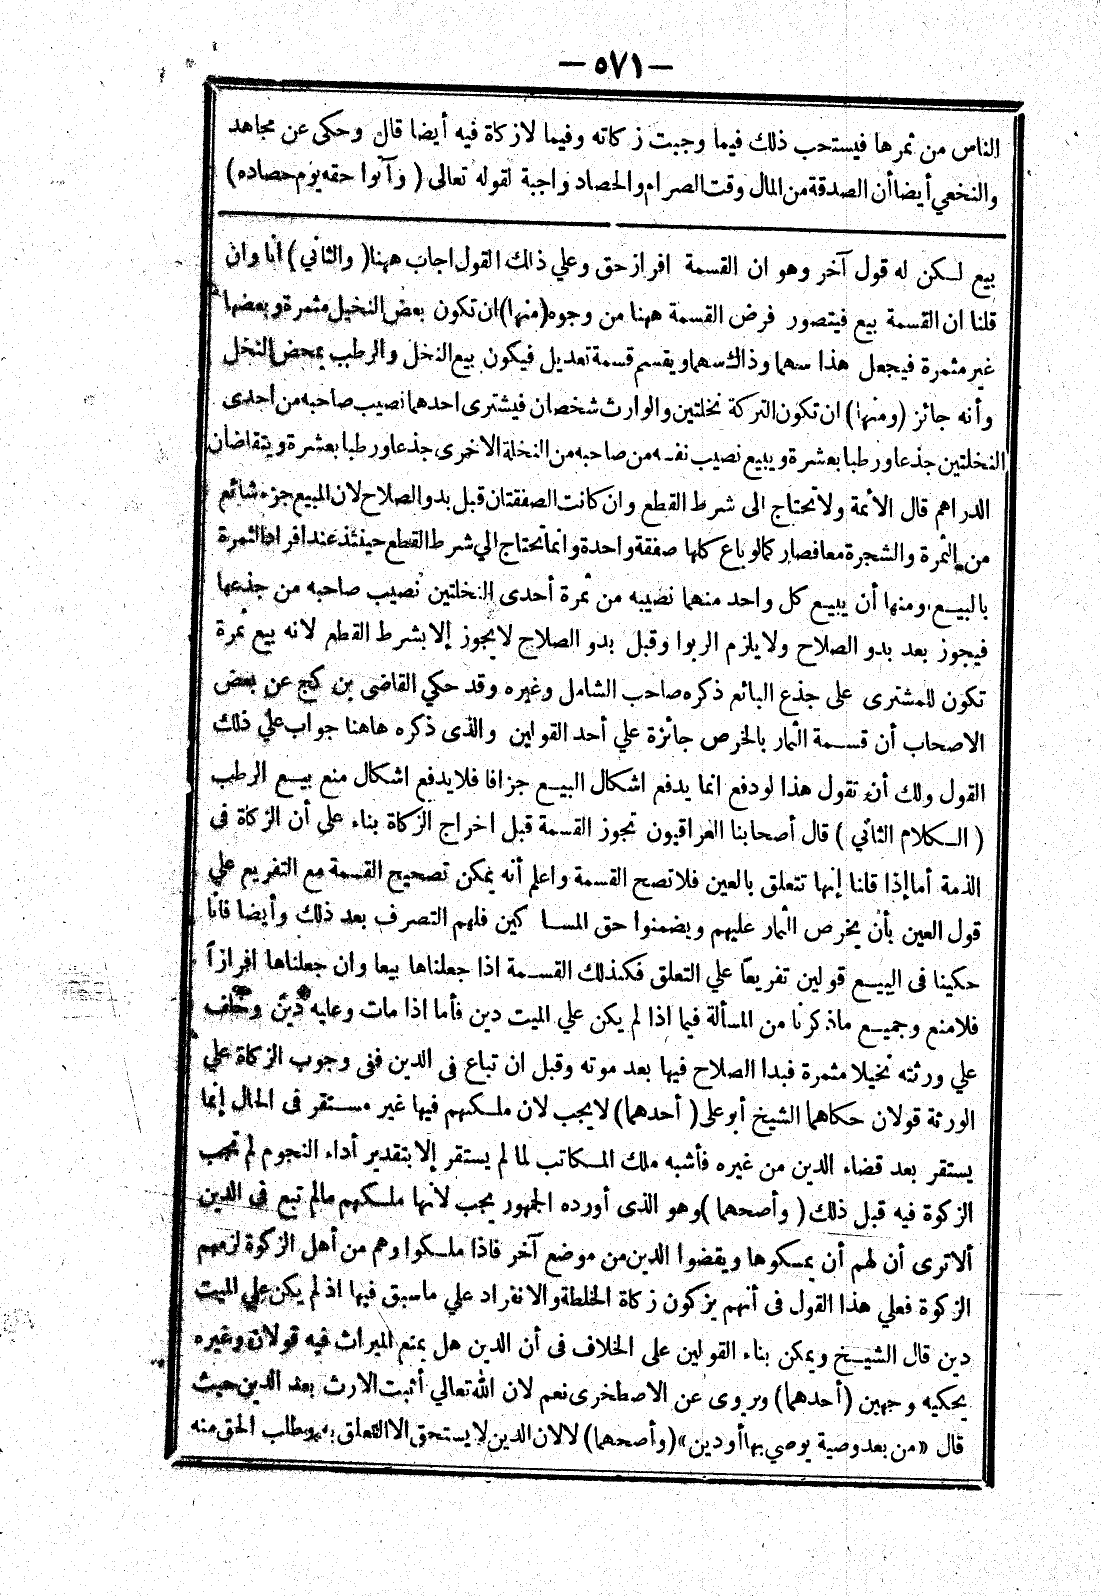 — ٥٧١ —
الناس من ثمرها فيستحب ذلك فيما وجبت زكاته وفيما لازكاة فيه أيضا قال وحكى عن مجاهد
والنخعي أيضا أن الصدقة من المال وقت الصرام والحصاد واجبة لقوله تعالى ( وآتوا حقه يوم حصاده )
بيع لكن له قول آخر وهو ان القسمة افراز حق وعلي ذلك القول اجاب ههنا ( والثاني ) أنا وان
قلنا ان القسمة بيع فيتصور فرض القسمة ههنا من وجوه (منها) ان تكون بعض النخيل مثمرة وبعضها
غير مثمرة فيجعل هذا سهما وذاك سهما ويقسم قسمة تعديل فيكون بيع النخل والرطب بمحض النخل
وأنه جائز (ومنها) ان تكون التركة نخلتين والوارث شخصان فيشترى احدهما نصيب صاحبه من احدى
النخلتين جذعا ورطبا بعشرة ويبيع نصيب نفسه من صاحبه من النخلة الاخرى جذعا ورطبا بعشرة ويتقاضان
الدراهم قال الأئمة ولا تحتاج الى شرط القطع وان كانت الصفقتان قبل بدو الصلاح لان المبيع جزء شائع
من الثمرة والشجرة معا فصار كما لو باع كلها صفقة واحدة وانما تحتاج الي شرط القطع حينئذ عند افراد الثمرة
بالبيع ومنها أن يبيع كل واحد منهما نصيبه من ثمرة أحدى النخلتين نصيب صاحبه من جذعها
فيجوز بعد بدو الصلاح ولا يلزم الربوا وقبل بدو الصلاح لا يجوز إلا بشرط القطع لانه بيع ثمرة
تكون للمشترى على جذع البائع ذكره صاحب الشامل وغيره وقد حكي القاضى بن كج عن بعض
الاصحاب أن قسمة الثمار بالخرص جائزة علي أحد القولين والذى ذكره هاهنا جواب علي ذلك
القول ولك أن تقول هذا لو دفع انما يدفع اشكال البيع جزافا فلا يدفع اشكال منع بيع الرطب
( الكلام الثاني ) قال أصحابنا العراقيون تجوز القسمة قبل اخراج الزكاة بناء على أن الزكاة فى
الذمة أما إذا قلنا إنها تتعلق بالعين فلا تصح القسمة واعلم أنه يمكن تصحيح القسمة مع التفريع علي
قول العين بأن يخرص الثمار عليهم ويضمنوا حق المساكين فلهم التصرف بعد ذلك وأيضا فانا
حكينا فى البيع قولين تفريعا علي التعلق فكذلك القسمة اذا جعلناها بيعا وان جعلناها افرازاً
فلا منع وجميع ما ذكرنا من المسألة فيما اذا لم يكن علي الميت دين فأما اذا مات وعليه دين وخلف
علي ورثته نخيلا مثمرة فبدا الصلاح فيها بعد موته وقبل ان تباع فى الدين ففى وجوب الزكاة علي
الورثة قولان حكاهما الشيخ أبو على ( أحدهما ) لا يجب لان ملكهم فيها غير مستقر فى الحال إنما
يستقر بعد قضاء الدين من غيره فأشبه ملك المكاتب لما لم يستقر إلا بتقدير أداء النجوم لم تجب
الزكوة فيه قبل ذلك ( وأصحهما ) وهو الذى أورده الجمهور يجب لأنها ملكهم مالم تبع فى الدين
ألا ترى أن لهم أن يمسكوها ويقضوا الدين من موضع آخر فاذا ملكوا وهم من أهل الزكوة لزمهم
الزكوة فعلي هذا القول فى أنهم يزكون زكاة الخلطة والانفراد علي ما سبق فيها اذ لم يكن علي الميت
دين قال الشيخ ويمكن بناء القولين على الخلاف فى أن الدين هل يمنع الميراث فيه قولان وغيره
يحكيه وجهين (أحدهما) ويروى عن الاصطخرى نعم لان الله تعالي أثبت الارث بعد الدين حيث
قال «من بعد وصية يوصي بها أو دين» (وأصحهما) لا لان الدين لا يستحق الا التعلق به وطلب الحق منه